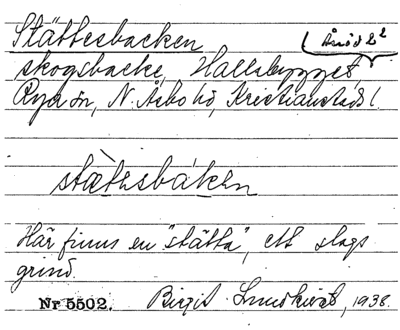 Stättesbacken
skogsbacke, Hallabygget
Rya sn, N. Åsbo hd, Kristianstads l.
stätesbáken
Här finns en "stätta", ett slags
grind.
Nr 5502. Birgit Lundkvist, 1938.